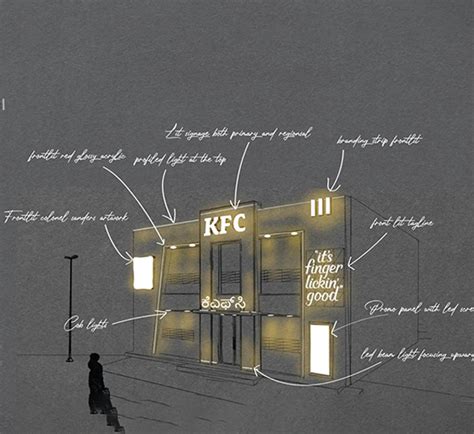 Lit signage both primary and regionial
branding strip frontlit
frontlit red glossy acrylic
profiled light at the top
Frontlit colonel sanders artwork
KFC
front lit tagline
"it's
finger
lickin'
good
ಕೆಎಫ್‌ಸಿ
Promo panel with led scre
Cob lights
led beam light focusing upwar